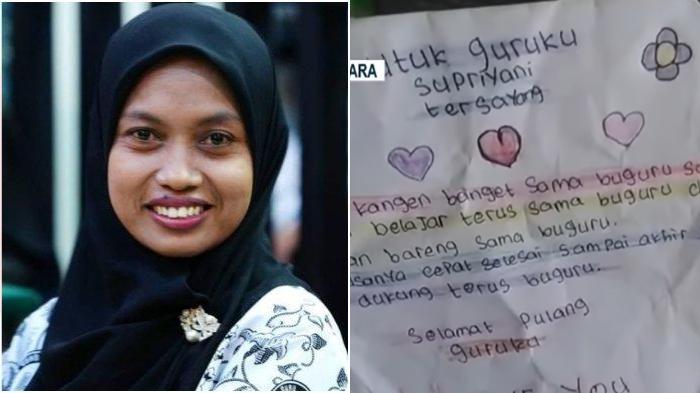 ARA
untuk guruku
Supriyani
tersayang
kangen banget sama buguru
belajar terus sama buguru
bareng sama buguru.
cepat selesai sampai akhir
dukung terus buguru.
Selamat Pulang
guruku
You